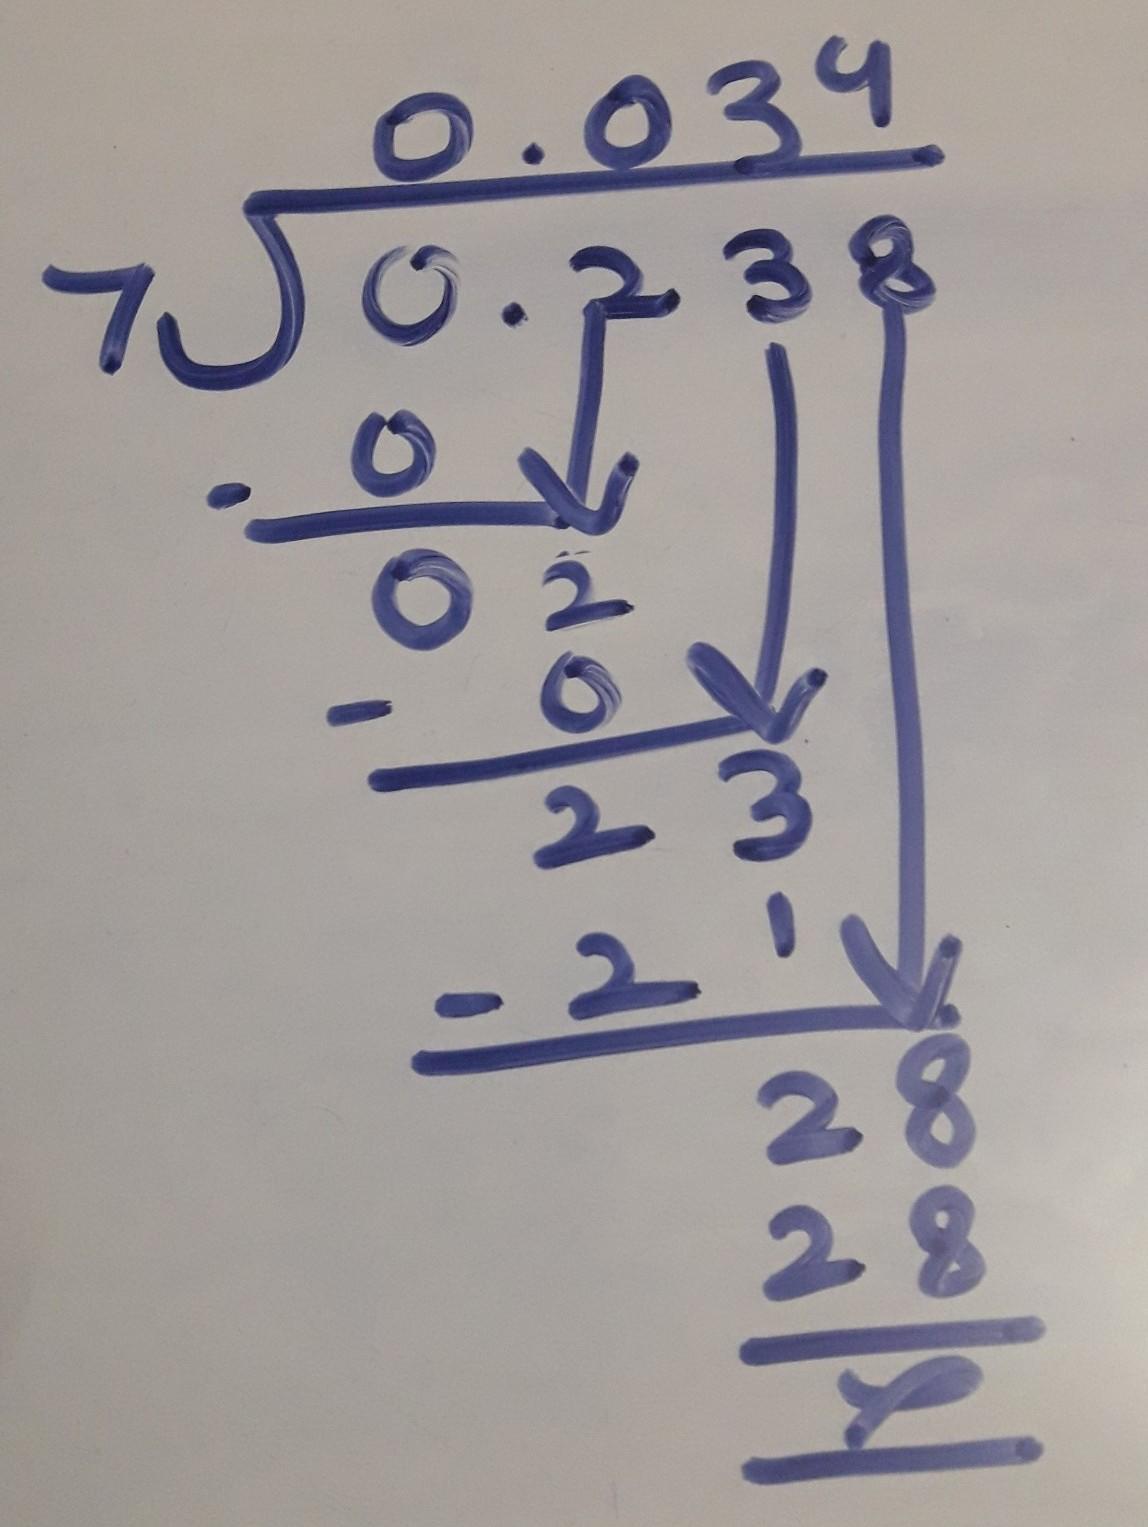 0.034
7 0.238
- 0
0 2
- 0
2 3
- 2 1
2 8
2 8